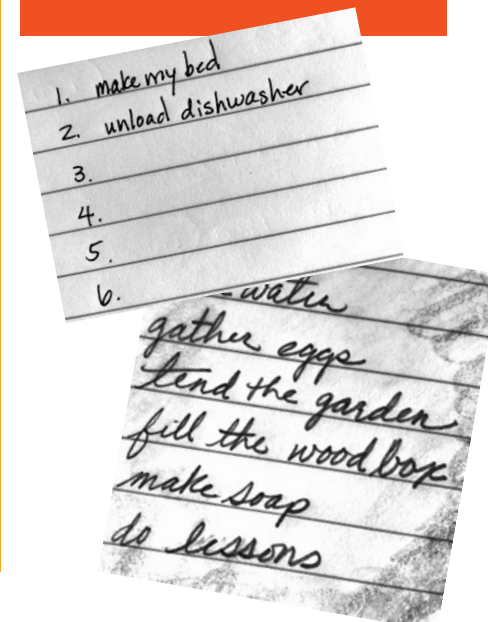 1. make my bed
2. unload dishwasher
3.
4.
5.
6.
- water
gather eggs
tend the garden
fill the woodbox
make soap
do lessons